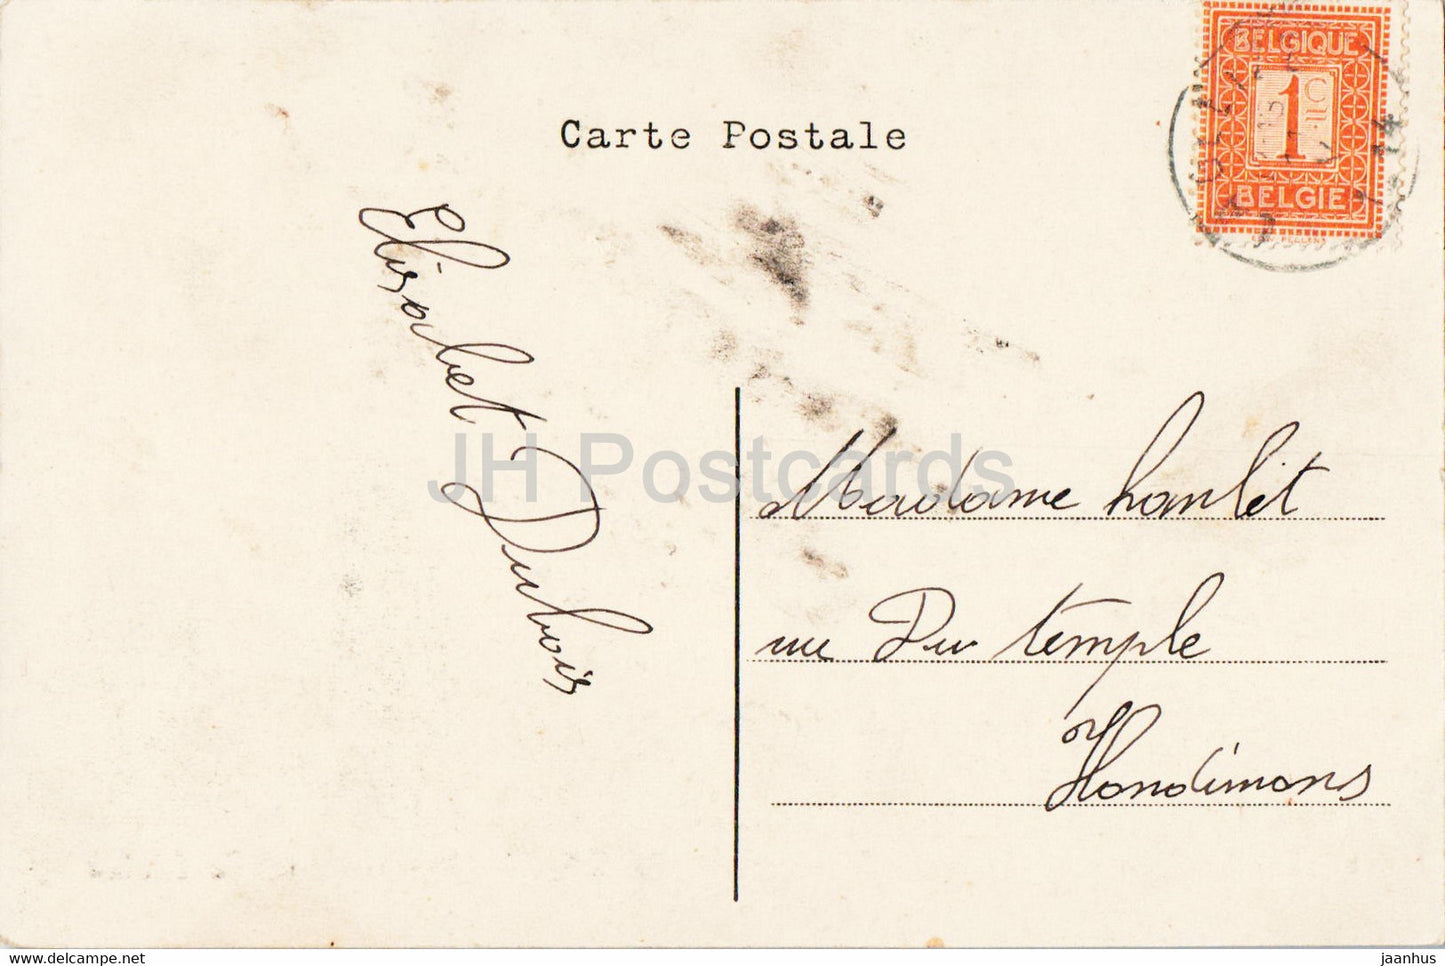 Carte Postale
BELGIQUE
1 C
BELGIE
14
Elisabet Dubois
JH Postcards
Madame hanlet
rue Du temple
Hondimons
www.delcampe.net
jaanhus